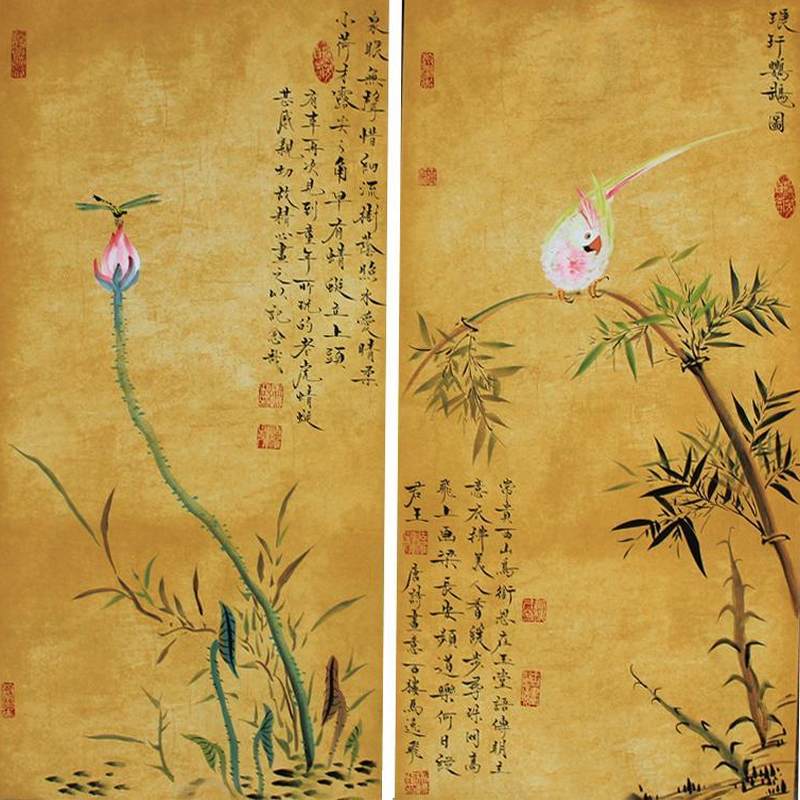 泉眼無聲惜細流樹蔭照水愛晴柔
小荷才露尖々角早有蜻蜓立上頭
有幸再次見到童年所玩的老虎蜻蜓
甚感親切故精心畫之以記念哉
琅玕鸚鵡圖
常貴西山鳥銜恩在玉堂語傳明主
意衣拂美人香緩步尋珠網高
飛上画梁長安頻道樂何日從
君王
唐詩畫意